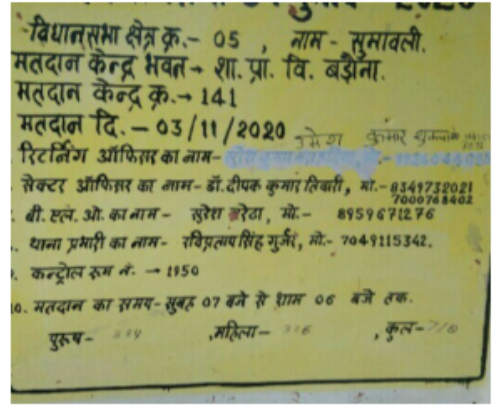 2020
विधानसभा क्षेत्र क्र.- 05 , नाम - सुमावली.
मतदान केन्द्र भवन → शा. प्रा. वि. बड़ौना.
मतदान केन्द्र क्र.→ 141
मतदान दि. - 03/11/2020
उमेश कुमार
रिटर्निंग ऑफिसर का नाम-
सेक्टर ऑफिसर का नाम- डॉ. दीपक कुमार तिवारी, मो.- 8349732021
7000768402
बी. एल. ओ. का नाम - सुरेश बरेठा, मो.- 8959671276
थाना प्रभारी का नाम- रविप्रताप सिंह गुर्जर, मो.- 7049115342.
कन्ट्रोल रूम नं. → 1950
10. मतदान का समय- सुबह 07 बजे से शाम 06 बजे तक.
पुरूष- ,महिला- , कुल-